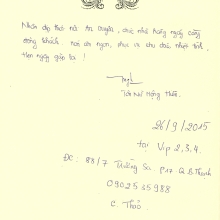 Nhân dịp ghé nhà An Duyên, chúc nhà hàng ngày càng
đông khách. Nơi ăn ngon, phục vụ chu đáo, nhiệt tình.
Hẹn ngày gặp lại!
26/9/2015
tại Vip 2.3.4.
ĐC: 88/7 Trường Sa P.17 Q.B.Thạnh
0902535988
C. Thảo